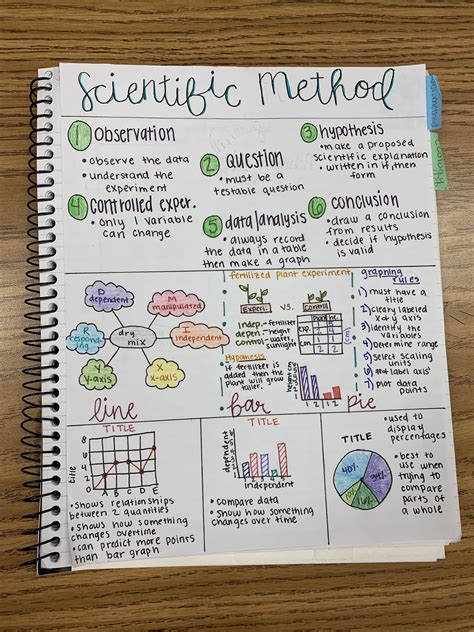 Scientific Method
1 Observation
• observe the data
• understand the experiment
2 Question
• must be a testable question
3 hypothesis
• make a proposed scientific explanation
• written in if then form
4 controlled exper.
• only 1 variable can change
5 data/analysis
• always record the data in a table then make a graph
6 conclusion
• draw a conclusion from results
• decide if hypothesis is valid
D dependent
M manipulated
R responding
dry mix
I independent
Y y-axis
X x-axis
fertilized plant experiment
Exper. vs. Control
indep.- fertilizer
depen.- height
control- water, sunlight
Hypothesis
if fertilizer is added then the plant will grow taller.
graphing rules
1) must have a title
2) clearly labeled x & y axis
3) identify the variables
4) Determine range
5) select scaling units
6) # label axis
7) plot data points
line
TITLE
title
8
6
4
2
0
A B C D E
• shows relationships between 2 quantities
• shows how something changes overtime
• can predict more points than bar graph
bar
TITLE
dependent
independent
• compare data
• show how something changes over time
pie
TITLE
• used to display percentages
• best to use when trying to compare parts of a whole